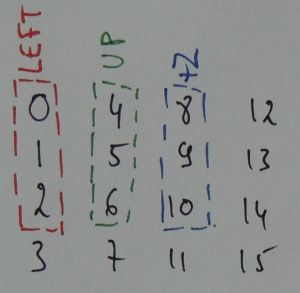 LEFT UP +Z
0 4 8 12
1 5 9 13
2 6 10 14
3 7 11 15